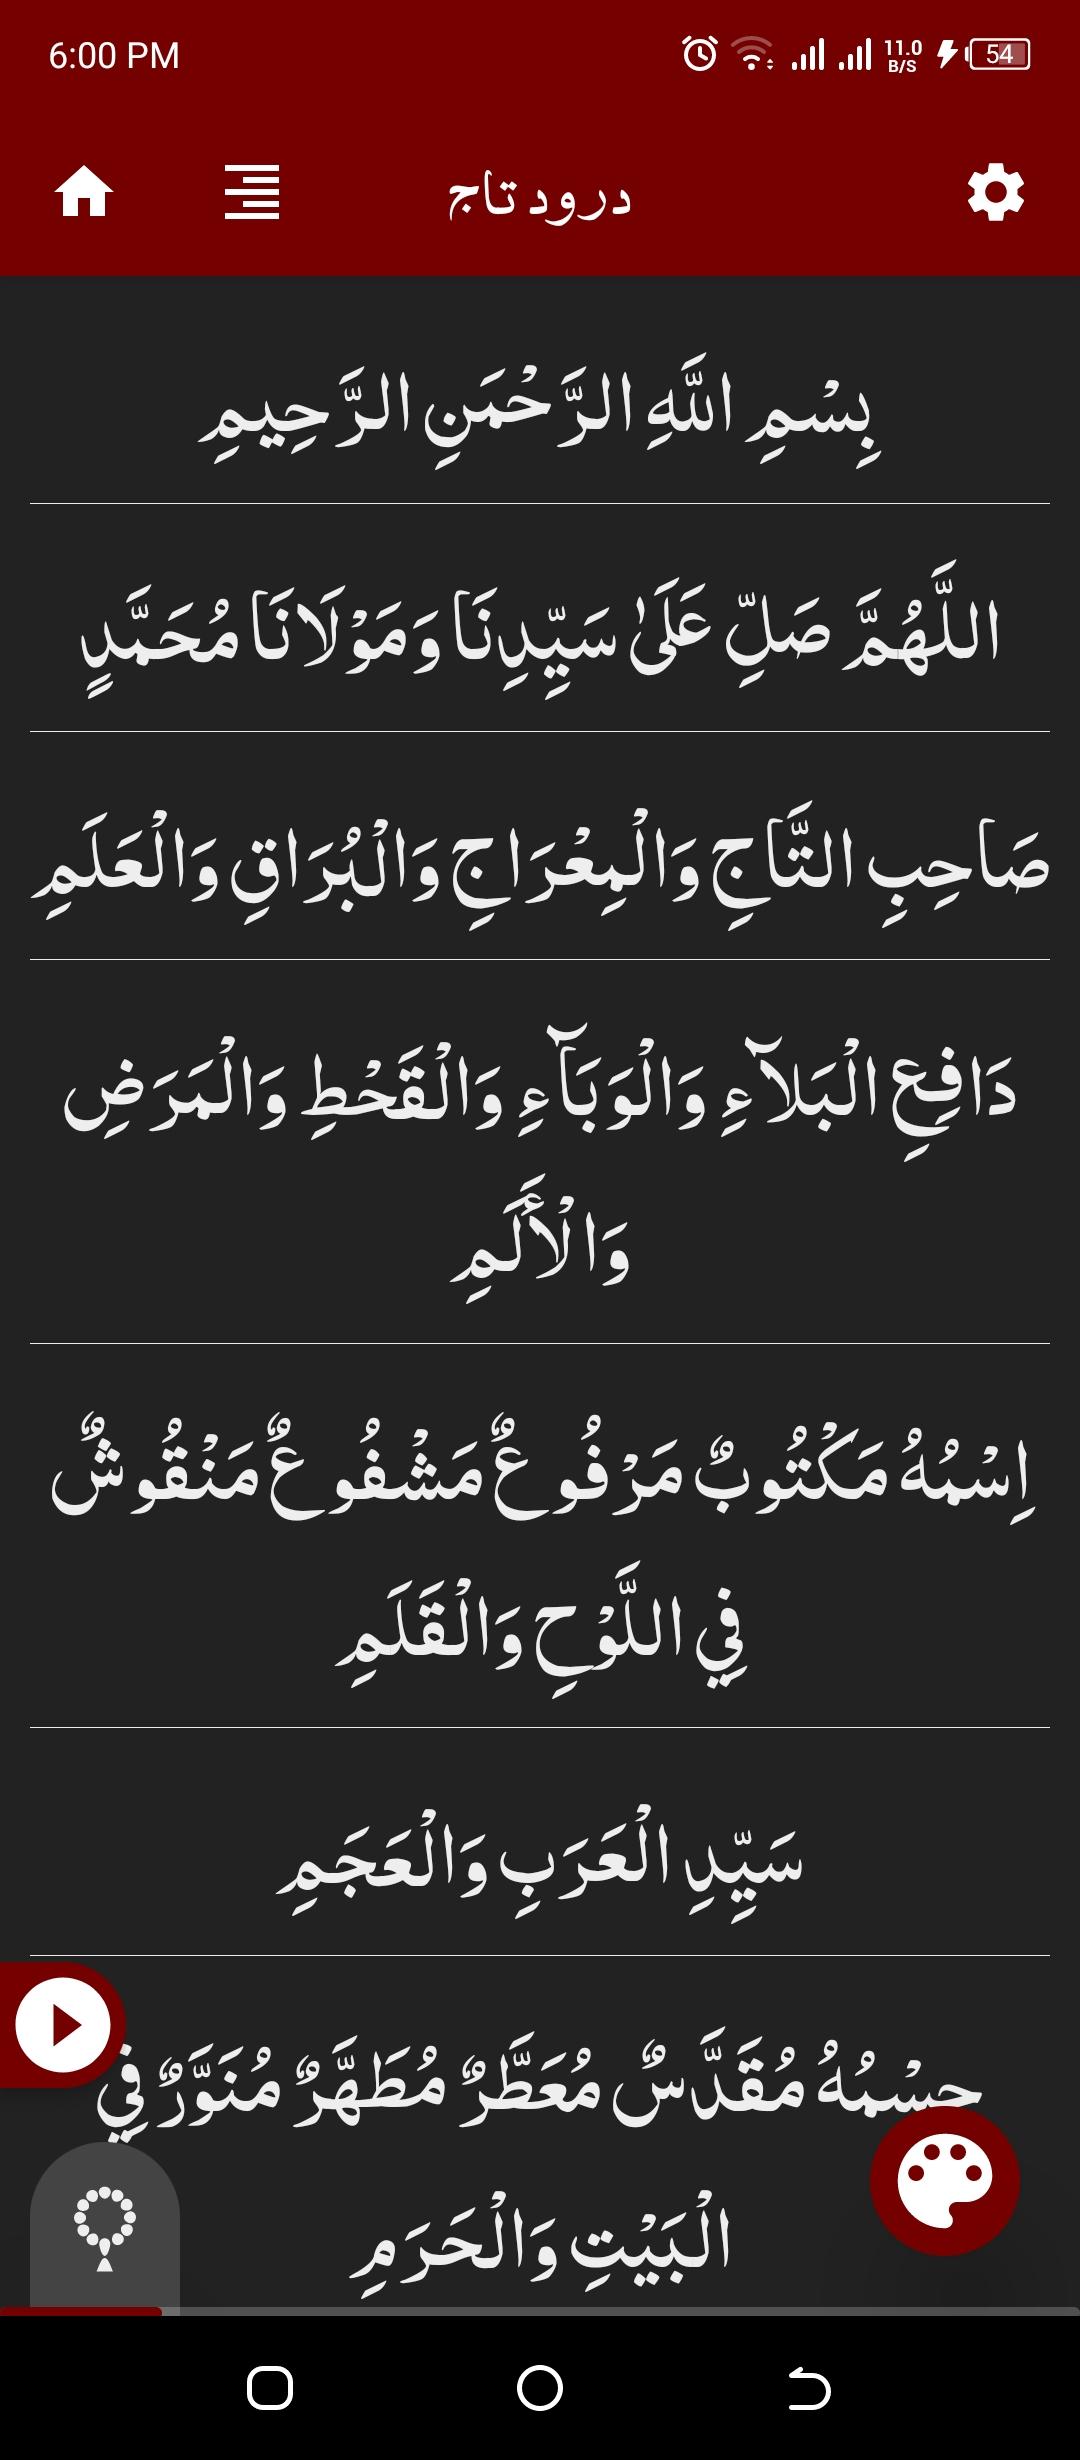 6:00 PM
11.0
B/S
54
درود تاج
بِسْمِ اللَّهِ الرَّحْمَنِ الرَّحِيمِ
اللَّهُمَّ صَلِّ عَلَىٰ سَيِّدِنَا وَمَوْلَانَا مُحَمَّدٍ
صَاحِبِ التَّاجِ وَالْمِعْرَاجِ وَالْبُرَاقِ وَالْعَلَمِ
دَافِعِ الْبَلآءِ وَالْوَبَآءِ وَالْقَحْطِ وَالْمَرَضِ
وَالْأَلَمِ
اِسْمُهُ مَكْتُوبٌ مَرْفُوعٌ مَشْفُوعٌ مَنْقُوشٌ
فِي اللَّوْحِ وَالْقَلَمِ
سَيِّدِ الْعَرَبِ وَالْعَجَمِ
جِسْمُهُ مُقَدَّسٌ مُعَطَّرٌ مُطَهَّرٌ مُنَوَّرٌ فِي
الْبَيْتِ وَالْحَرَمِ